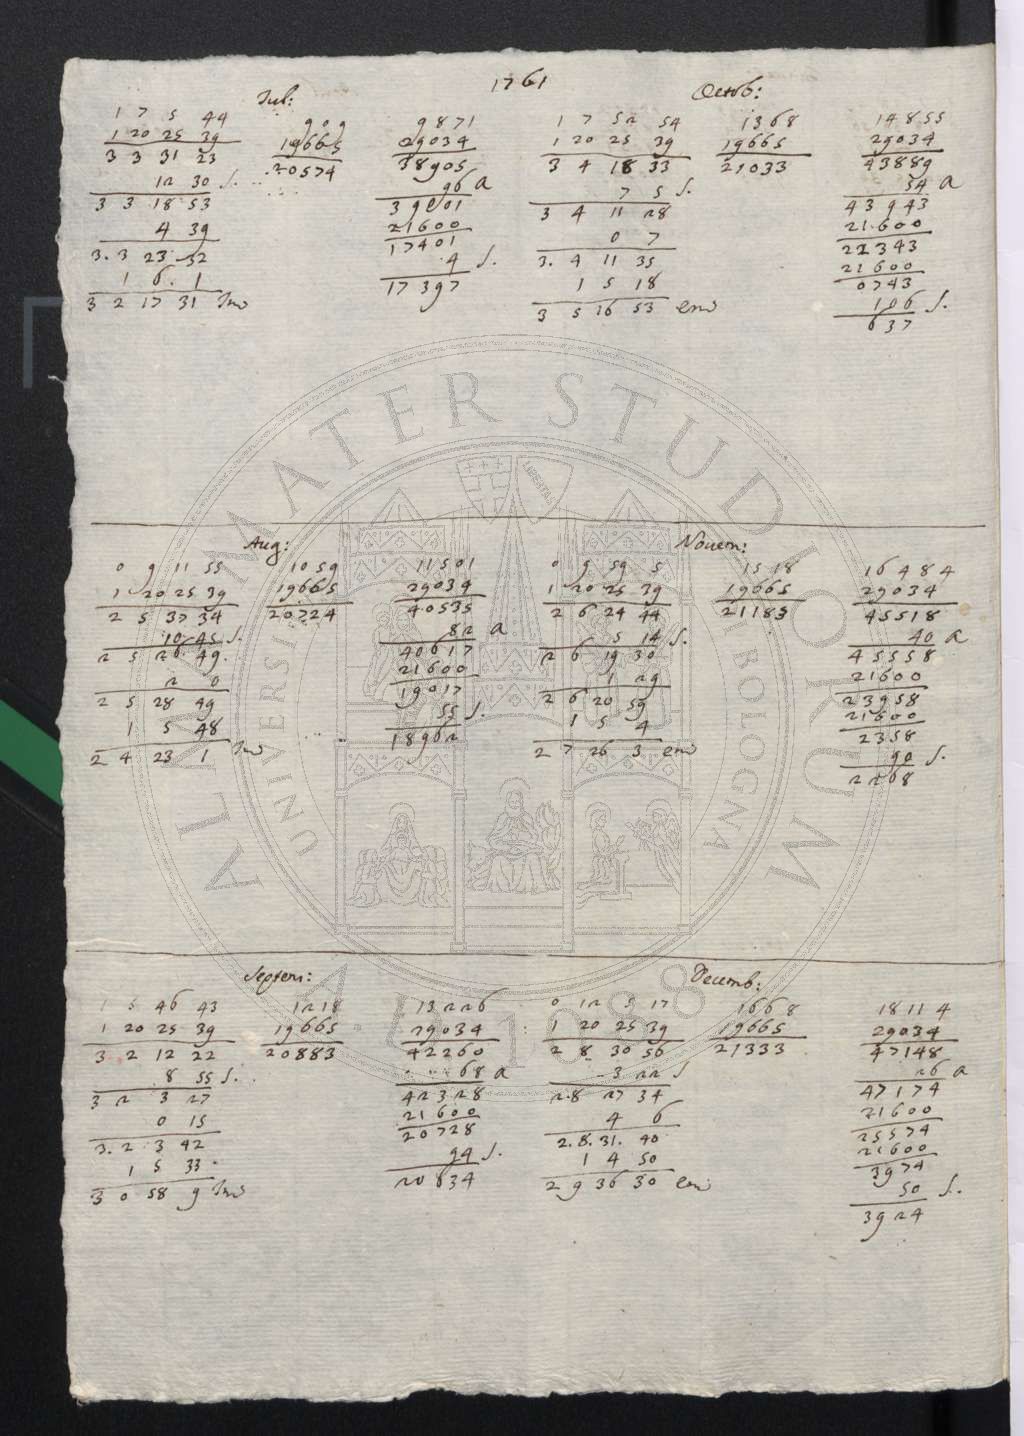 1761
Jul:
1 7 5 44
1 20 25 39
3 3 31 23
12 30 S.
3 3 18 53
4 39
3. 3 23 52
1 6. 1
3 2 17 31
909
19665
20574
9871
29034
38905
96 a
39001
21600
17401
4 S.
17397
Octob:
1 7 52 54
1 20 25 39
3 4 18 33
7 5 S.
3 4 11 28
0 7
3. 4 11 35
1 5 18
3 5 16 53
1368
19665
21033
14855
29034
43889
54 a
43943
21600
22343
21600
0743
106 S.
637
Aug:
0 9 11 55
1 20 25 39
2 5 37 34
10 45 S.
2 5 26 49.
2 0
2 5 28 49
1 5 48
2 4 23 1
1059
19665
20724
11501
29034
40535
82 a
40617
21600
19017
55 S.
18962
Novem:
0 9 59 5
1 20 25 39
2 6 24 44
5 14 S.
2 6 19 30
1 29
2 6 20 59
1 5 4
2 7 26 3
1518
19665
21183
16484
29034
45518
40 a
45558
21600
23958
21600
2358
90 S.
2268
Septem:
1 5 46 43
1 20 25 39
3 2 12 22
8 55 S.
3 2 3 27
0 15
3. 2 3 42
1 5 33
3 0 58 9
1218
19665
20883
13226
29034
42260
68 a
42328
21600
20728
94 S.
20634
Decemb:
0 12 5 17
1 20 25 39
2 8 30 56
3 22 S
2. 8 27 34
4 6
2. 8. 31. 40
1 4 50
2 9 36 30
1668
19665
21333
18114
29034
47148
26 a
47174
21600
25574
21600
3974
50 S.
3924
ALMA MATER STUDIORUM
UNIVERSITÀ DI BOLOGNA
A.D. 1088
LIBERTAS